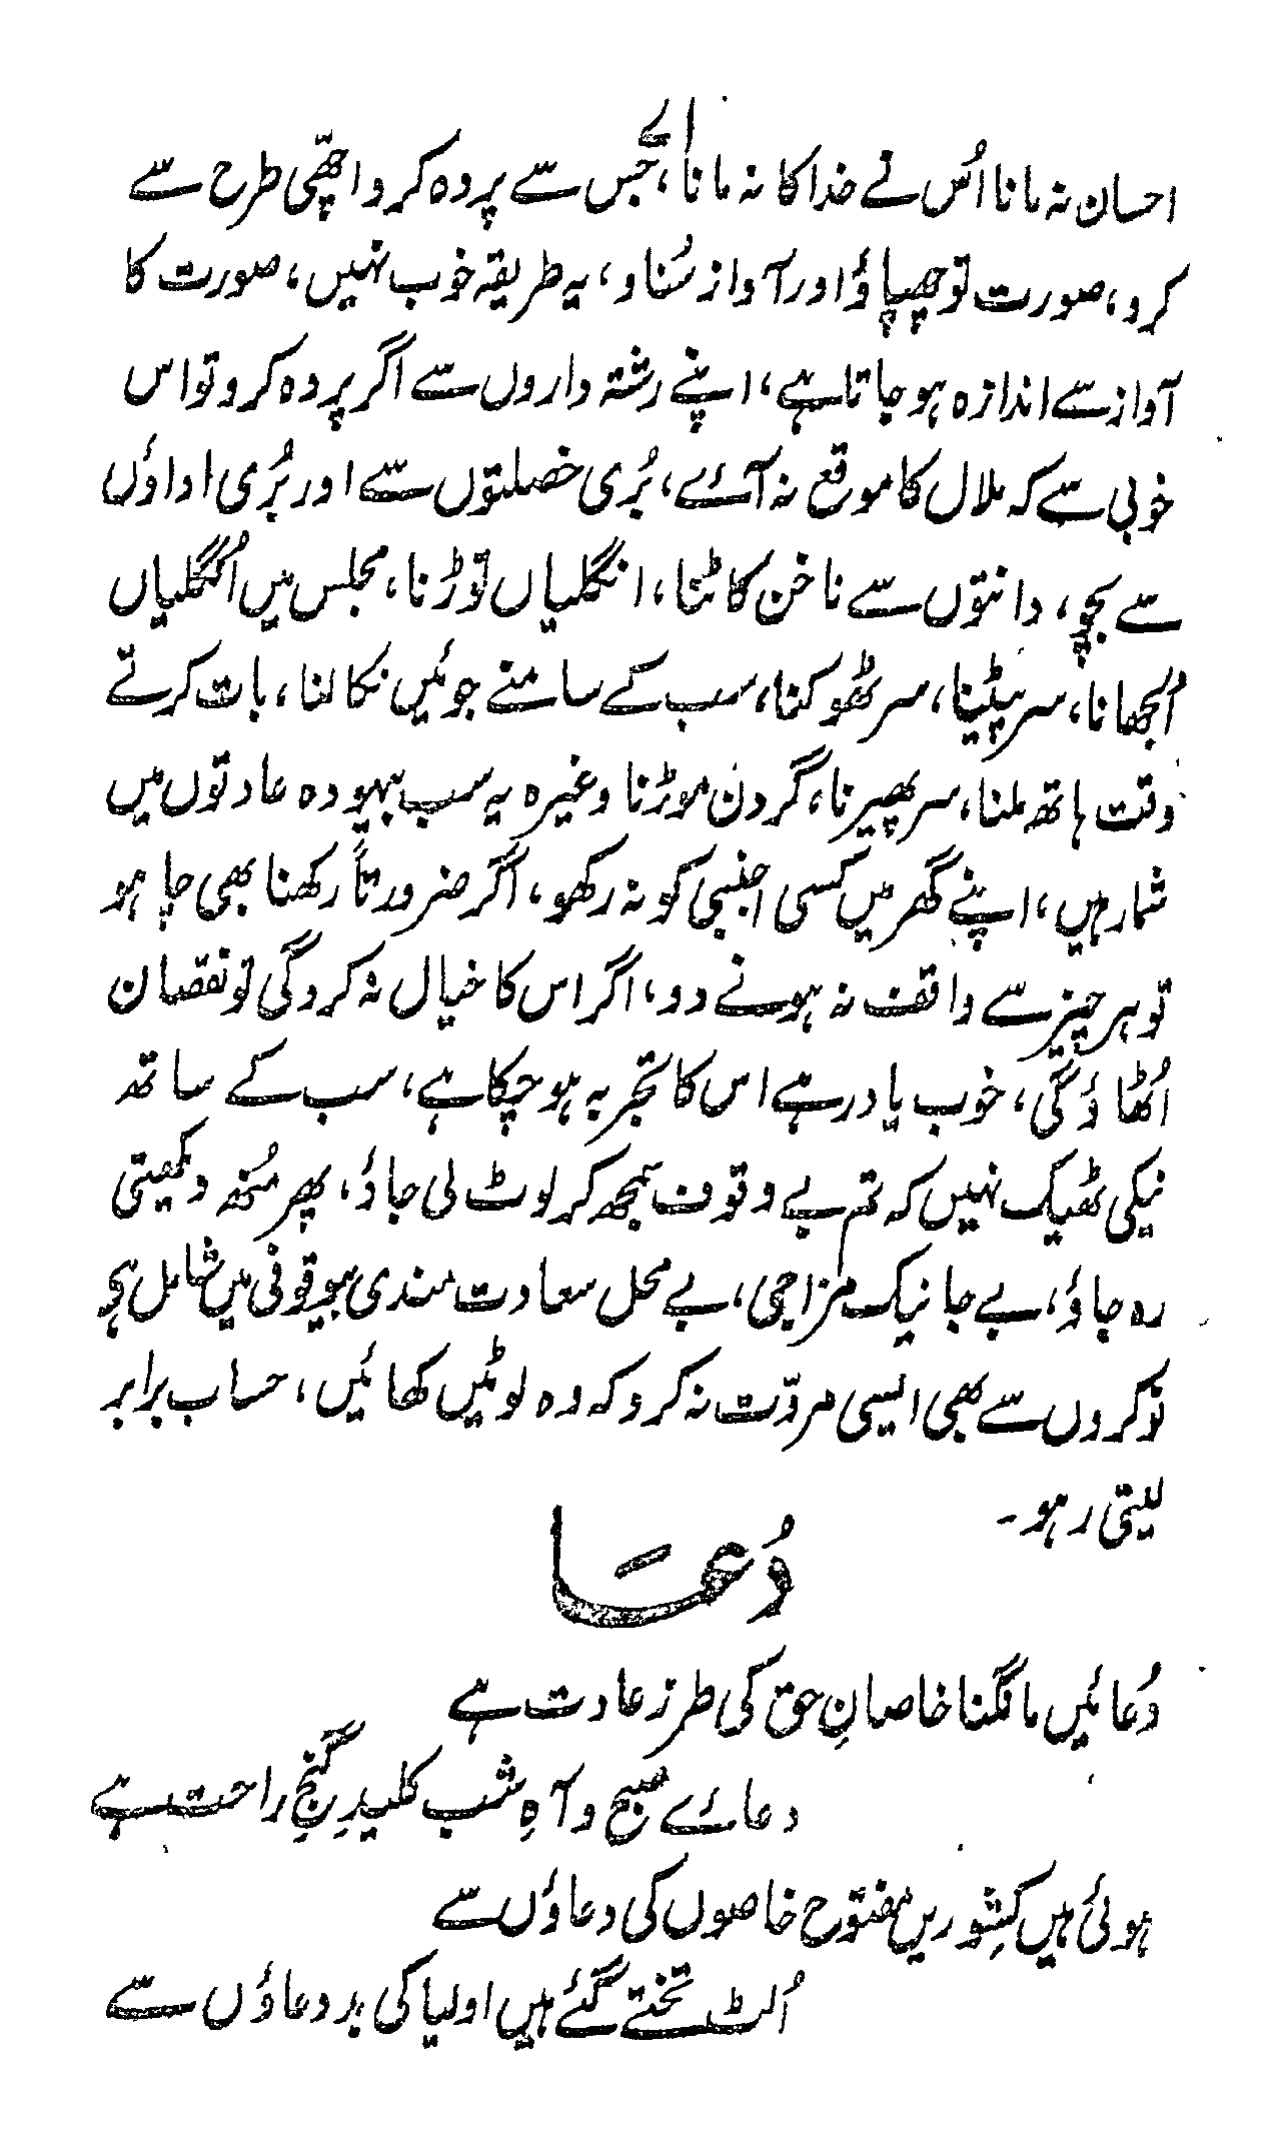 ۱۷
احسان نہ مانا اُس نے خدا کا نہ مانا، جس سے پردہ کرو اچھّی طرح سے
کرو، صورت تو چھپاؤ اور آواز سُناو، یہ طریقہ خوب نہیں، صورت کا
آواز سے اندازہ ہو جاتا ہے، اپنے رشتہ داروں سے اگر پردہ کرو تو اس
خوبی سے کہ ملال کا موقع نہ آئے، بُری خصلتوں سے اور بُری اداؤں
سے بچو، دانتوں سے ناخن کاٹنا، انگلیاں توڑنا، مجلس میں اُنگلیاں
اُلجھانا، سر پیٹینا، سر ٹھوکنا، سب کے سامنے جوئیں نکالنا، بات کرتے
وقت ہاتھ ملنا، سر پھیرنا، گردن موڑنا وغیرہ یہ سب بیہودہ عادتوں میں
شمار ہیں، اپنے گھر میں کسی اجنبی کو نہ رکھو، اگر ضرورتاً رکھنا بھی چاہو
تو ہر چیز سے واقف نہ ہونے دو، اگر اس کا خیال نہ کروگی تو نقصان
اُٹھاؤگی، خوب یاد رہے اس کا تجربہ ہوچکا ہے، سب کے ساتھ
نیکی ٹھیک نہیں کہ تم بے وقوف سمجھ کر لوٹ لی جاؤ، پھر مُنھ دیکھیتی
رہ جاؤ، بے جا نیک مزاجی، بے محل سعادت مندی بیوقوفی میں شامل ہے
نوکروں سے بھی ایسی مروّت نہ کرو کہ وہ لوٹیں کھائیں، حساب برابر
لیتی رہو۔
دُعا
دُعائیں مانگنا خاصانِ حق کی طرز عادت ہے
دعائے صبح و آہِ شب کلیدِ گنجِ راحت ہے
ہوئی ہیں کِشوریں مفتوح خاصوں کی دعاؤں سے
اُلٹ تختے گئے ہیں اولیا کی بددعاؤں سے